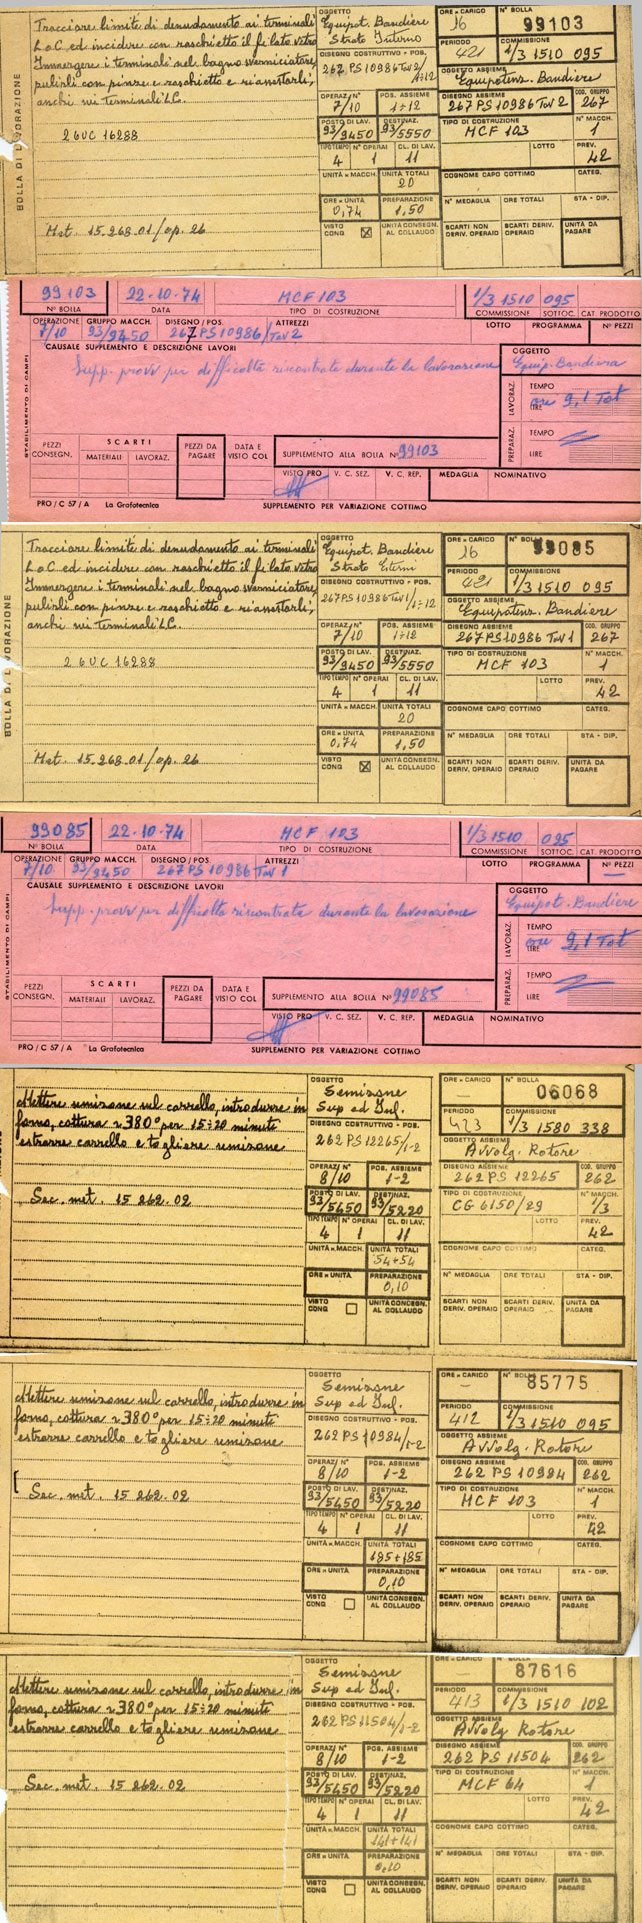 BOLLA DI LAVORAZIONE
Tracciare limite di denudamento ai terminali
L.a C ed incidere con raschietto il filato vetro
Immergere i terminali nel bagno sverniciatore,
pulirli con pinze e raschietto e riassestarli,
anchi sui terminali L.C.
2 6UC 16288
Met. 15.268.01/op. 26
Equipot. Bandiere
Strato Interno
DISEGNO COSTRUTTIVO - POS.
262 PS 10986 Tav 2/
1÷12
OPERAZ/ N° POS. ASSIEME
7/10 1÷12
POSTO DI LAV. DESTINAZ.
93/9450 93/5550
TIPO TEMPO N° OPERAI CL. DI LAV.
4 1 11
UNITÀ x MACCH. UNITÀ TOTALI
20
ORE x UNITÀ PREPARAZIONE
0,74 1,50
VISTO CONG UNITÀ CONSEGN. AL COLLAUDO
ORE x CARICO N° BOLLA
16 99103
PERIODO COMMISSIONE
421 1/3 1510 095
OGGETTO ASSIEME
Equipotenz. Bandiere
DISEGNO ASSIEME COD. GRUPPO
267 PS 10986 Tav 2 267
TIPO DI COSTRUZIONE N° MACCH.
MCF 103 1
LOTTO PREV.
42
COGNOME CAPO COTTIMO CATEG.
N° MEDAGLIA ORE TOTALI STA - DIP.
SCARTI NON DERIV. OPERAIO SCARTI DERIV. OPERAIO UNITÀ DA PAGARE
99103 22-10-74 MCF 103 1/3 1510 095
N° BOLLA DATA TIPO DI COSTRUZIONE COMMISSIONE SOTTOC. CAT PRODOTTO
OPERAZIONE GRUPPO MACCH. DISEGNO/POS. ATTREZZI LOTTO PROGRAMMA N° PEZZI
7/10 93/9450 267 PS 10986/Tav 2
CAUSALE SUPPLEMENTO E DESCRIZIONE LAVORI OGGETTO
Supp. provv per difficoltà riscontrate durante la lavorazione Equip. Bandiera
STABILIMENTO DI CAMPI
LAVORAZ. TEMPO ore 9,1 Tot
LIRE
PREPARAZ. TEMPO
LIRE
PEZZI CONSEGN. SCARTI MATERIALI LAVORAZ. PEZZI DA PAGARE DATA E VISTO COL
SUPPLEMENTO ALLA BOLLA N° 99103
VISTO PRO V. C. SEZ. V. C. REP. MEDAGLIA NOMINATIVO
PRO / C 57 / A La Grafotecnica SUPPLEMENTO PER VARIAZIONE COTTIMO
BOLLA DI LAVORAZIONE
Tracciare limite di denudamento ai terminali
L.a C ed incidere con raschietto il filato vetro
Immergere i terminali nel bagno sverniciatore,
pulirli con pinze e raschietto e riassestarli,
anchi sui terminali L.C.
2 6UC 16288
Met. 15.268.01/op. 26
OGGETTO
Equipot. Bandiere
Strato Esterni
DISEGNO COSTRUTTIVO - POS.
267 PS 10986 Tav 1/1÷12
OPERAZ/ N° POS. ASSIEME
7/10 1÷12
POSTO DI LAV. DESTINAZ.
93/9450 93/5550
TIPO TEMPO N° OPERAI CL. DI LAV.
4 1 11
UNITÀ x MACCH. UNITÀ TOTALI
20
ORE x UNITÀ PREPARAZIONE
0,74 1,50
VISTO CONG UNITÀ CONSEGN. AL COLLAUDO
ORE x CARICO N° BOLLA
16 99085
PERIODO COMMISSIONE
421 1/3 1510 095
OGGETTO ASSIEME
Equipotenz. Bandiere
DISEGNO ASSIEME COD. GRUPPO
267 PS 10986 Tav 1 267
TIPO DI COSTRUZIONE N° MACCH.
MCF 103 1
LOTTO PREV.
42
COGNOME CAPO COTTIMO CATEG.
N° MEDAGLIA ORE TOTALI STA - DIP.
SCARTI NON DERIV. OPERAIO SCARTI DERIV. OPERAIO UNITÀ DA PAGARE
99085 22-10-74 MCF 103 1/3 1510 095
N° BOLLA DATA TIPO DI COSTRUZIONE COMMISSIONE SOTTOC. CAT PRODOTTO
OPERAZIONE GRUPPO MACCH. DISEGNO/POS. ATTREZZI LOTTO PROGRAMMA N° PEZZI
7/10 93/9450 267 PS 10986 Tav 1
CAUSALE SUPPLEMENTO E DESCRIZIONE LAVORI OGGETTO
Supp. provv per difficoltà riscontrata durante la lavorazione Equipot. Bandiere
STABILIMENTO DI CAMPI
LAVORAZ. TEMPO ore 9,1 Tot
LIRE
PREPARAZ. TEMPO
LIRE
PEZZI CONSEGN. SCARTI MATERIALI LAVORAZ. PEZZI DA PAGARE DATA E VISTO COL
SUPPLEMENTO ALLA BOLLA N° 99085
VISTO PRO V. C. SEZ. V. C. REP. MEDAGLIA NOMINATIVO
PRO / C 57 / A La Grafotecnica SUPPLEMENTO PER VARIAZIONE COTTIMO
Mettere semizone sul carrello, introdurre in
forno, cottura a 380° per 15÷20 minuti
estrarre carrello e togliere semizone
Sec. met. 15 262.02
OGGETTO
Semizone
Sup ed Inf.
DISEGNO COSTRUTTIVO - POS.
262 PS 12265/1-2
OPERAZ/ N° POS. ASSIEME
8/10 1-2
POSTO DI LAV. DESTINAZ.
93/5450 93/5220
TIPO TEMPO N° OPERAI CL. DI LAV.
4 1 11
UNITÀ x MACCH. UNITÀ TOTALI
54+54
ORE x UNITÀ PREPARAZIONE
0,10
VISTO CONG UNITÀ CONSEGN. AL COLLAUDO
ORE x CARICO N° BOLLA
06068
PERIODO COMMISSIONE
423 1/3 1580 338
OGGETTO ASSIEME
Avvolg. Rotore
DISEGNO ASSIEME COD. GRUPPO
262 PS 12265 262
TIPO DI COSTRUZIONE N° MACCH.
CG 6150/29 1/3
LOTTO PREV.
42
COGNOME CAPO COTTIMO CATEG.
N° MEDAGLIA ORE TOTALI STA - DIP.
SCARTI NON DERIV. OPERAIO SCARTI DERIV. OPERAIO UNITÀ DA PAGARE
Mettere semizone sul carrello, introdurre in
forno, cottura a 380° per 15÷20 minuti
estrarre carrello e togliere semizone
Sec. met. 15 262.02
OGGETTO
Semizone
Sup ed Inf.
DISEGNO COSTRUTTIVO - POS.
262 PS 10984/1-2
OPERAZ/ N° POS. ASSIEME
8/10 1-2
POSTO DI LAV. DESTINAZ.
93/5450 93/5220
TIPO TEMPO N° OPERAI CL. DI LAV.
4 1 11
UNITÀ x MACCH. UNITÀ TOTALI
185+185
ORE x UNITÀ PREPARAZIONE
0,10
VISTO CONG UNITÀ CONSEGN. AL COLLAUDO
ORE x CARICO N° BOLLA
85775
PERIODO COMMISSIONE
412 1/3 1510 095
OGGETTO ASSIEME
Avvolg. Rotore
DISEGNO ASSIEME COD. GRUPPO
262 PS 10984 262
TIPO DI COSTRUZIONE N° MACCH.
MCF 103 1
LOTTO PREV.
42
COGNOME CAPO COTTIMO CATEG.
N° MEDAGLIA ORE TOTALI STA - DIP.
SCARTI NON DERIV. OPERAIO SCARTI DERIV. OPERAIO UNITÀ DA PAGARE
Mettere semizone sul carrello, introdurre in
forno, cottura a 380° per 15÷20 minuti
estrarre carrello e togliere semizone
Sec. met. 15 262.02
OGGETTO
Semizone
Sup ed Inf.
DISEGNO COSTRUTTIVO - POS.
262 PS 11504/1-2
OPERAZ/ N° POS. ASSIEME
8/10 1-2
POSTO DI LAV. DESTINAZ.
93/5450 93/5220
TIPO TEMPO N° OPERAI CL. DI LAV.
4 1 11
UNITÀ x MACCH. UNITÀ TOTALI
141+141
ORE x UNITÀ PREPARAZIONE
0,10
VISTO CONG UNITÀ CONSEGN. AL COLLAUDO
ORE x CARICO N° BOLLA
87616
PERIODO COMMISSIONE
413 1/3 1510 102
OGGETTO ASSIEME
Avvolg Rotore
DISEGNO ASSIEME COD. GRUPPO
262 PS 11504 262
TIPO DI COSTRUZIONE N° MACCH.
MCF 64 1
LOTTO PREV.
42
COGNOME CAPO COTTIMO CATEG.
N° MEDAGLIA ORE TOTALI STA - DIP.
SCARTI NON DERIV. OPERAIO SCARTI DERIV. OPERAIO UNITÀ DA PAGARE